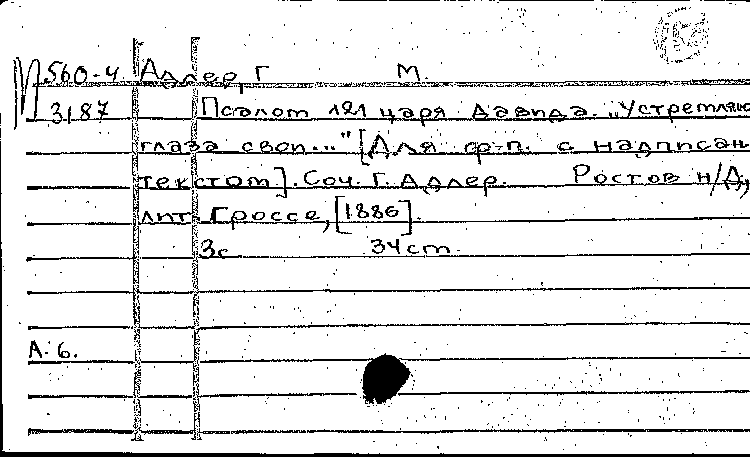 М 560-4 Адлер, Г М.
3187 Псалом 121 царя Давида. „Устремляю
глаза свои..." [Для ф-п. с надписан
текстом]. Соч. Г. Адлер. Ростов н/Д,
лит. Гроссе, [1886].
3с 34cm.
А. б.